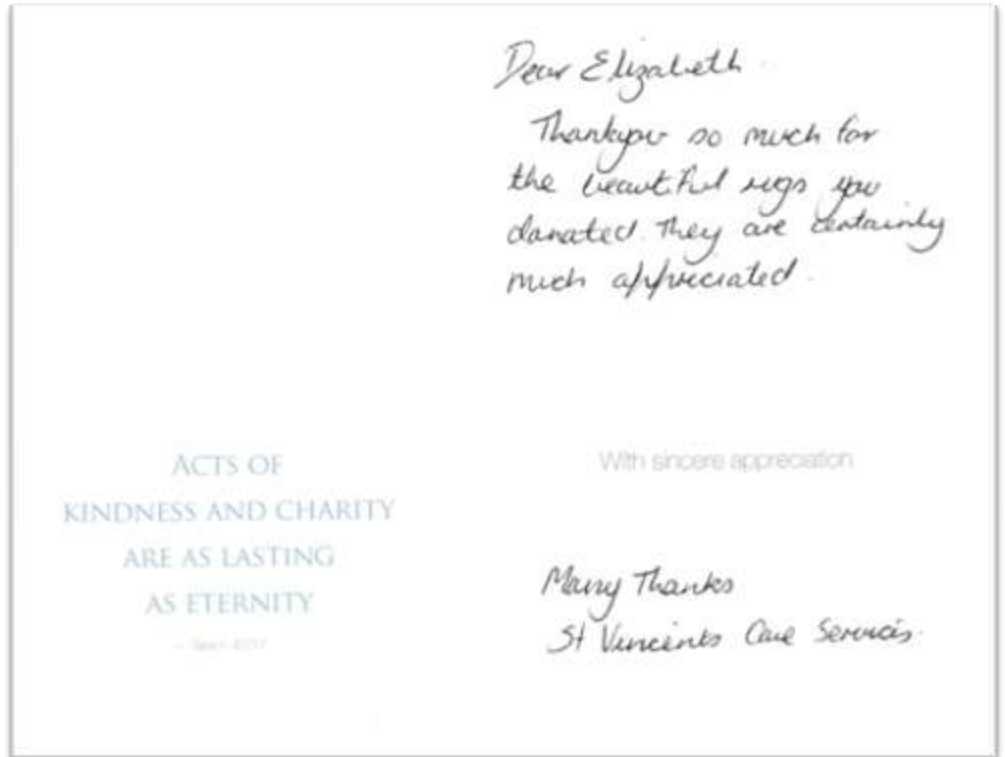 ACTS OF
KINDNESS AND CHARITY
ARE AS LASTING
AS ETERNITY
Dear Elizabeth
Thankyou so much for
the beautiful rugs you
donated. They are certainly
much appreciated.
With sincere appreciation
Many Thanks
St Vincents Care Services.